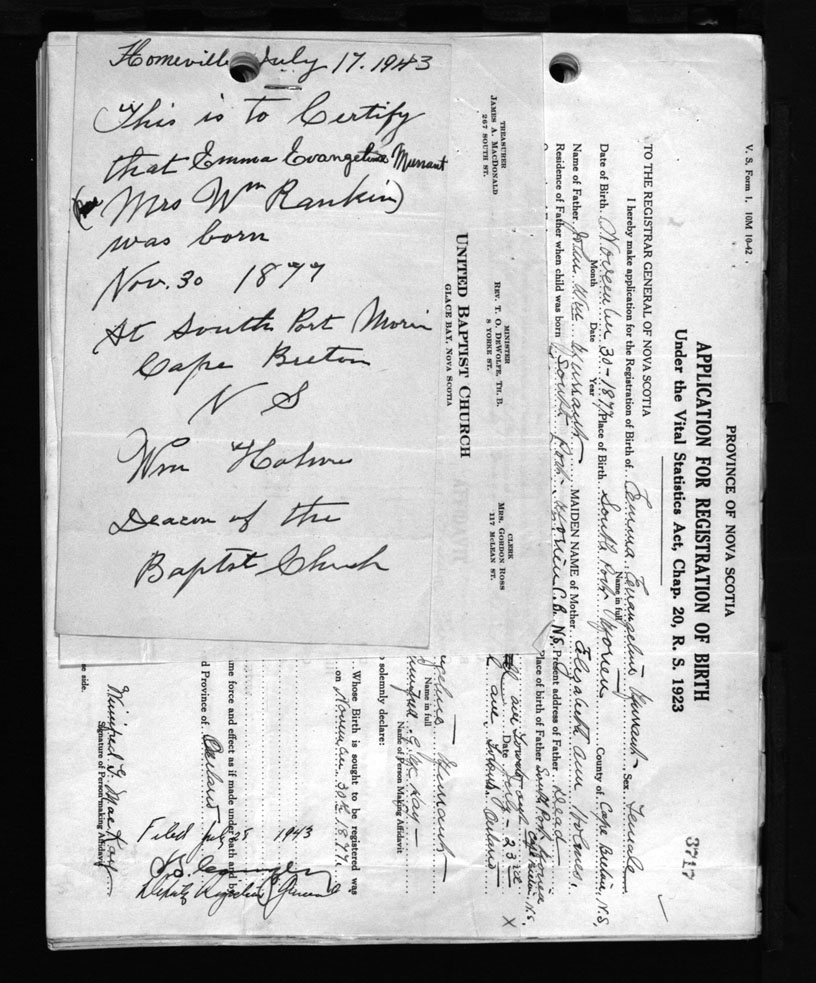 Homeville July 17. 1943
This is to Certify
that Emma Evangeline Murrant
(Mrs Wm Rankin)
was born
Nov. 30 1877
At South Port Morien
Cape Breton
N S
Wm Holmes
Deacon of the
Baptist Church
TREASURER
JAMES A. MACDONALD
267 SOUTH ST.
MINISTER
REV. T. O. DEWOLFE, TH. B.
8 YORKE ST.
CLERK
MRS. GORDON ROSS
117 MCLEAN ST.
UNITED BAPTIST CHURCH
GLACE BAY, NOVA SCOTIA
V. S. Form 1. 10M 10-42.
3717
PROVINCE OF NOVA SCOTIA
APPLICATION FOR REGISTRATION OF BIRTH
Under the Vital Statistics Act, Chap. 20, R. S. 1923
TO THE REGISTRAR GENERAL OF NOVA SCOTIA
I hereby make application for the Registration of Birth of Emma Evangeline Murrant Sex Female
Name in full
Date of Birth November 30-1877 Place of Birth South Port Morien County of Cape Breton, N.S,
Month Date Year
Name of Father John Wm Murrant MAIDEN NAME of Mother Elizabeth Ann Holmes.
Residence of Father when child was born South Port Morien C.B. N.S. Present address of Father Dead
Place of birth of Father South Port Morien Cape Breton, N.S.
Date July - 23rd X
Ave, Toronto, Ontario
Murrant
Name in full
Winifred G. MacKay
Name of Person Making Affidavit
solemnly declare:
Whose Birth is sought to be registered was
on November 30th 1877.
d Province of Ontario
me force and effect as if made under oath and b
Winifred G. MacKay
Signature of Person making Affidavit
e side.
Filed July 28 1943
Deputy Registrar General